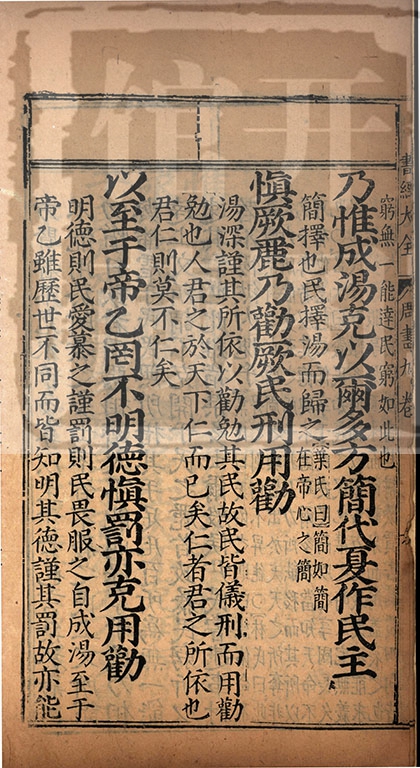 書經大全 周書九卷
窮無一能達民窮如此也
乃惟成湯克以爾多方簡代夏作民主
簡擇也民擇湯而歸之葉氏曰簡如簡在帝心之簡
慎厥麗乃勸厥民刑用勸
湯深謹其所依以勸勉其民故民皆儀刑而用勸
勉也人君之於天下仁而已矣仁者君之所依也
君仁則莫不仁矣
以至于帝乙罔不明德慎罰亦克用勸
明德則民愛慕之謹罰則民畏服之自成湯至于
帝乙雖歷世不同而皆知明其德謹其罰故亦能